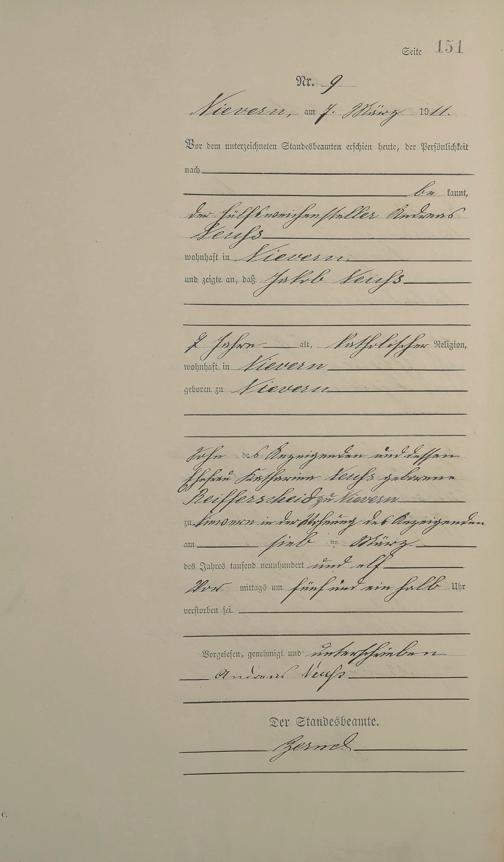 Seite 151
Nr. 9
Nievern, am 7. März 1911.
Vor dem unterzeichneten Standesbeamten erschien heute, der Persönlichkeit
nach
be kannt,
der Hülfsweichensteller Andreas
Neuhs
wohnhaft in Nievern
und zeigte an, daß Jakob Neuhs
7 Jahre alt, katholischer Religion,
wohnhaft in Nievern
geboren zu Nievern
Sohn des Anzeigenden und dessen
Ehefrau Katharina Neuhs geborene
Reifferscheid zu Nievern
zu Nievern in der Wohnung des Anzeigenden
am sieb März
des Jahres tausend neunhundert und elf
Vor mittags um fünf und ein halb Uhr
verstorben sei.
Vorgelesen, genehmigt und unterschrieben
Andreas Neuhs
Der Standesbeamte.